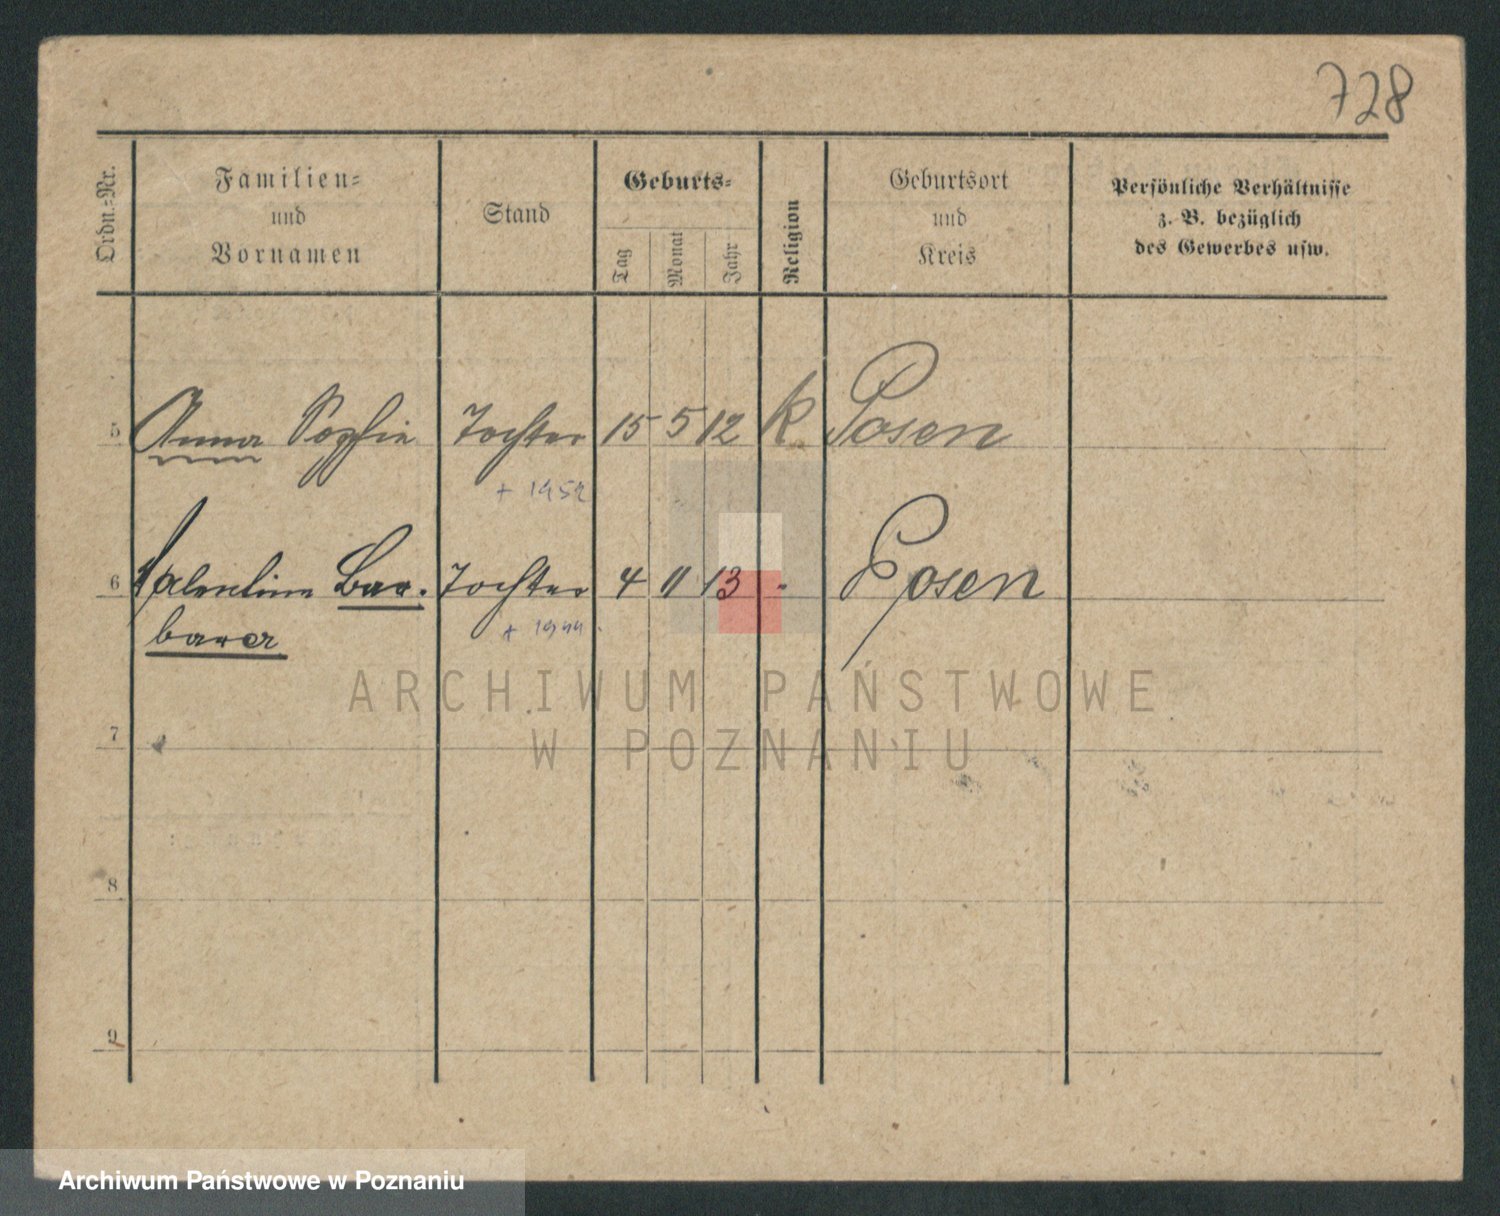 728
Ordn.=Nr.
Familien=
und
Vornamen
Stand
Geburts=
Tag
Monat
Jahr
Religion
Geburtsort
und
Kreis
Persönliche Verhältnisse
z. B. bezüglich
des Gewerbes usw.
5 Anna Sophie Tochter 15 5 12 k Posen
+ 1952
6 Valentine Bar- Tochter 4 11 13 - Posen
bara + 1944
ARCHIWUM PAŃSTWOWE
W POZNANIU
7
8
9
Archiwum Państwowe w Poznaniu